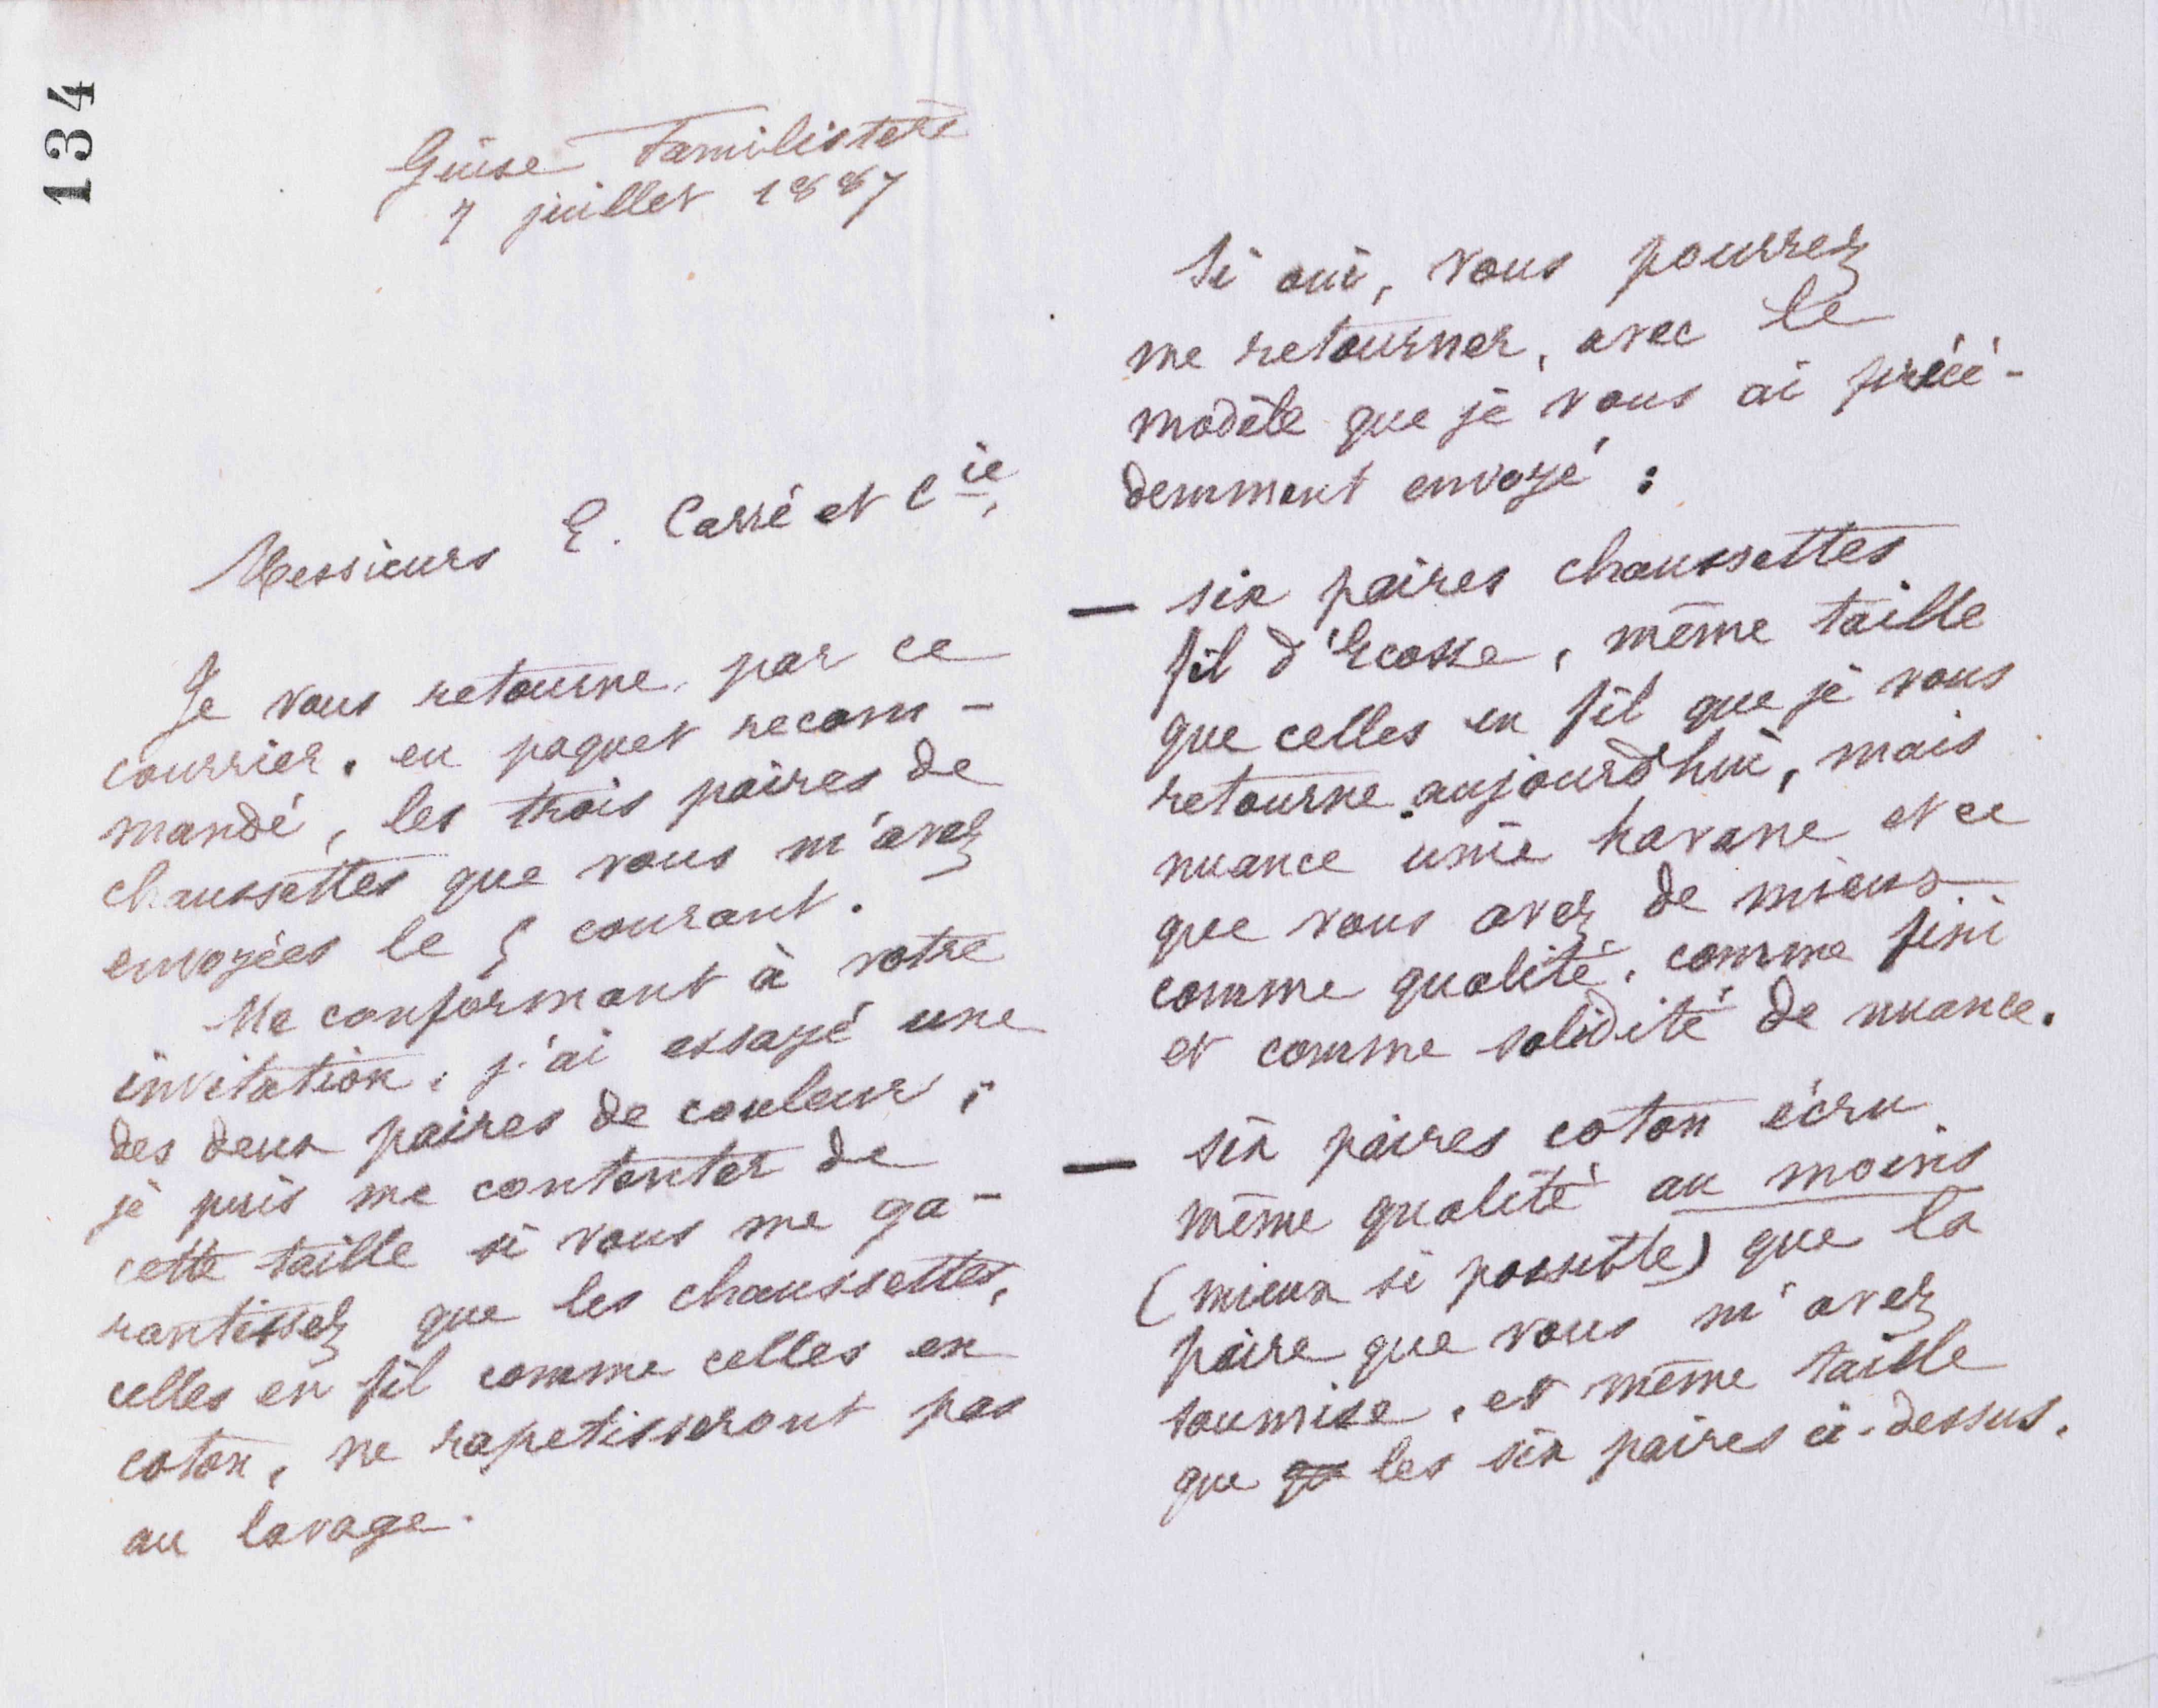 134
Guise Familistère
7 juillet 1887
Messieurs E. Carré et Cie,
Je vous retourne, par ce
courrier, en paquet recom-
mandé, les trois paires de
chaussettes que vous m'avez
envoyées le 5 courant.
Me conformant à votre
invitation, j'ai essayé une
des deux paires de couleur ;
je puis me contenter de
cette taille si vous me ga-
rantissez que les chaussettes,
celles en fil comme celles en
coton, ne rapetisseront pas
au lavage.
Si oui, vous pourrez
me retourner, avec le
modèle que je vous ai précé-
demment envoyé :
— six paires chaussettes
fil d'Ecosse, même taille
que celles en fil que je vous
retourne aujourd'hui, mais
nuance unie havane et ce
que vous avez de mieux
comme qualité, comme fini
et comme solidité de nuance.
— six paires coton écru
même qualité au moins
(mieux si possible) que la
paire que vous m'avez
soumise, et même taille
que qu les six paires ci-dessus.